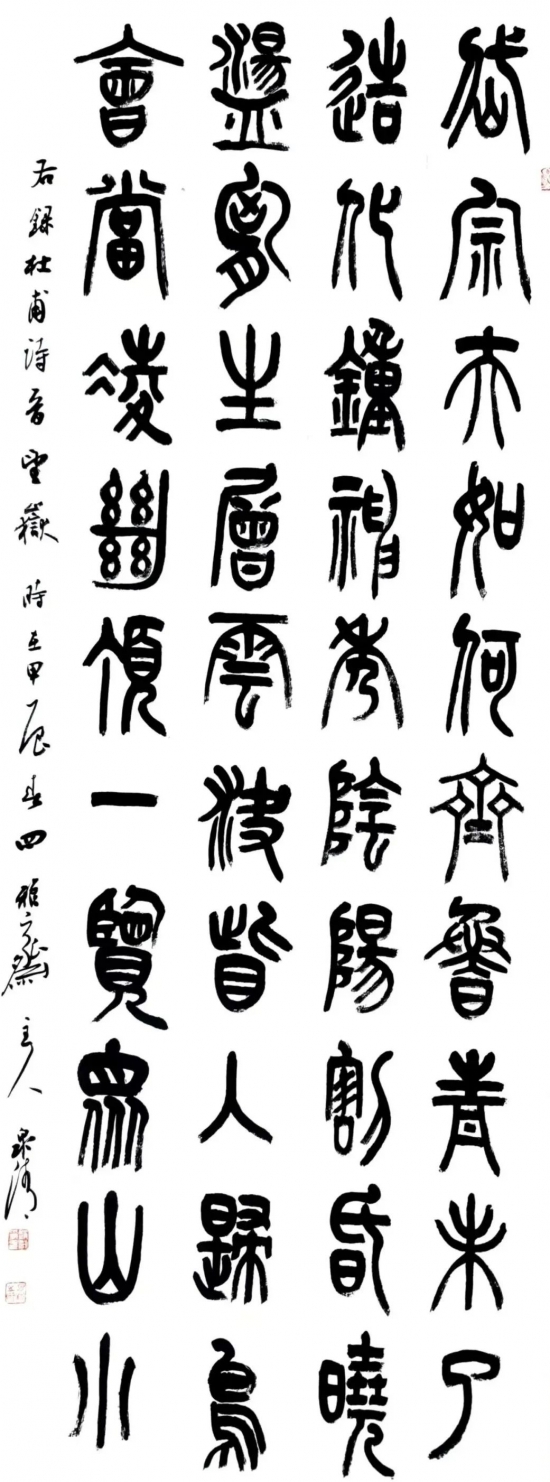 岱宗夫如何齊魯青未了
造化鐘神秀陰陽割昏曉
盪胸生層雲決眥入歸鳥
會當凌絕頂一覽眾山小
右錄杜甫詩一首望嶽 時在甲辰春四 雅齋主人